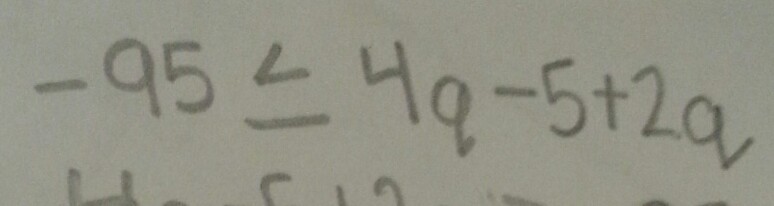 -95 ≤ 4q-5+2q